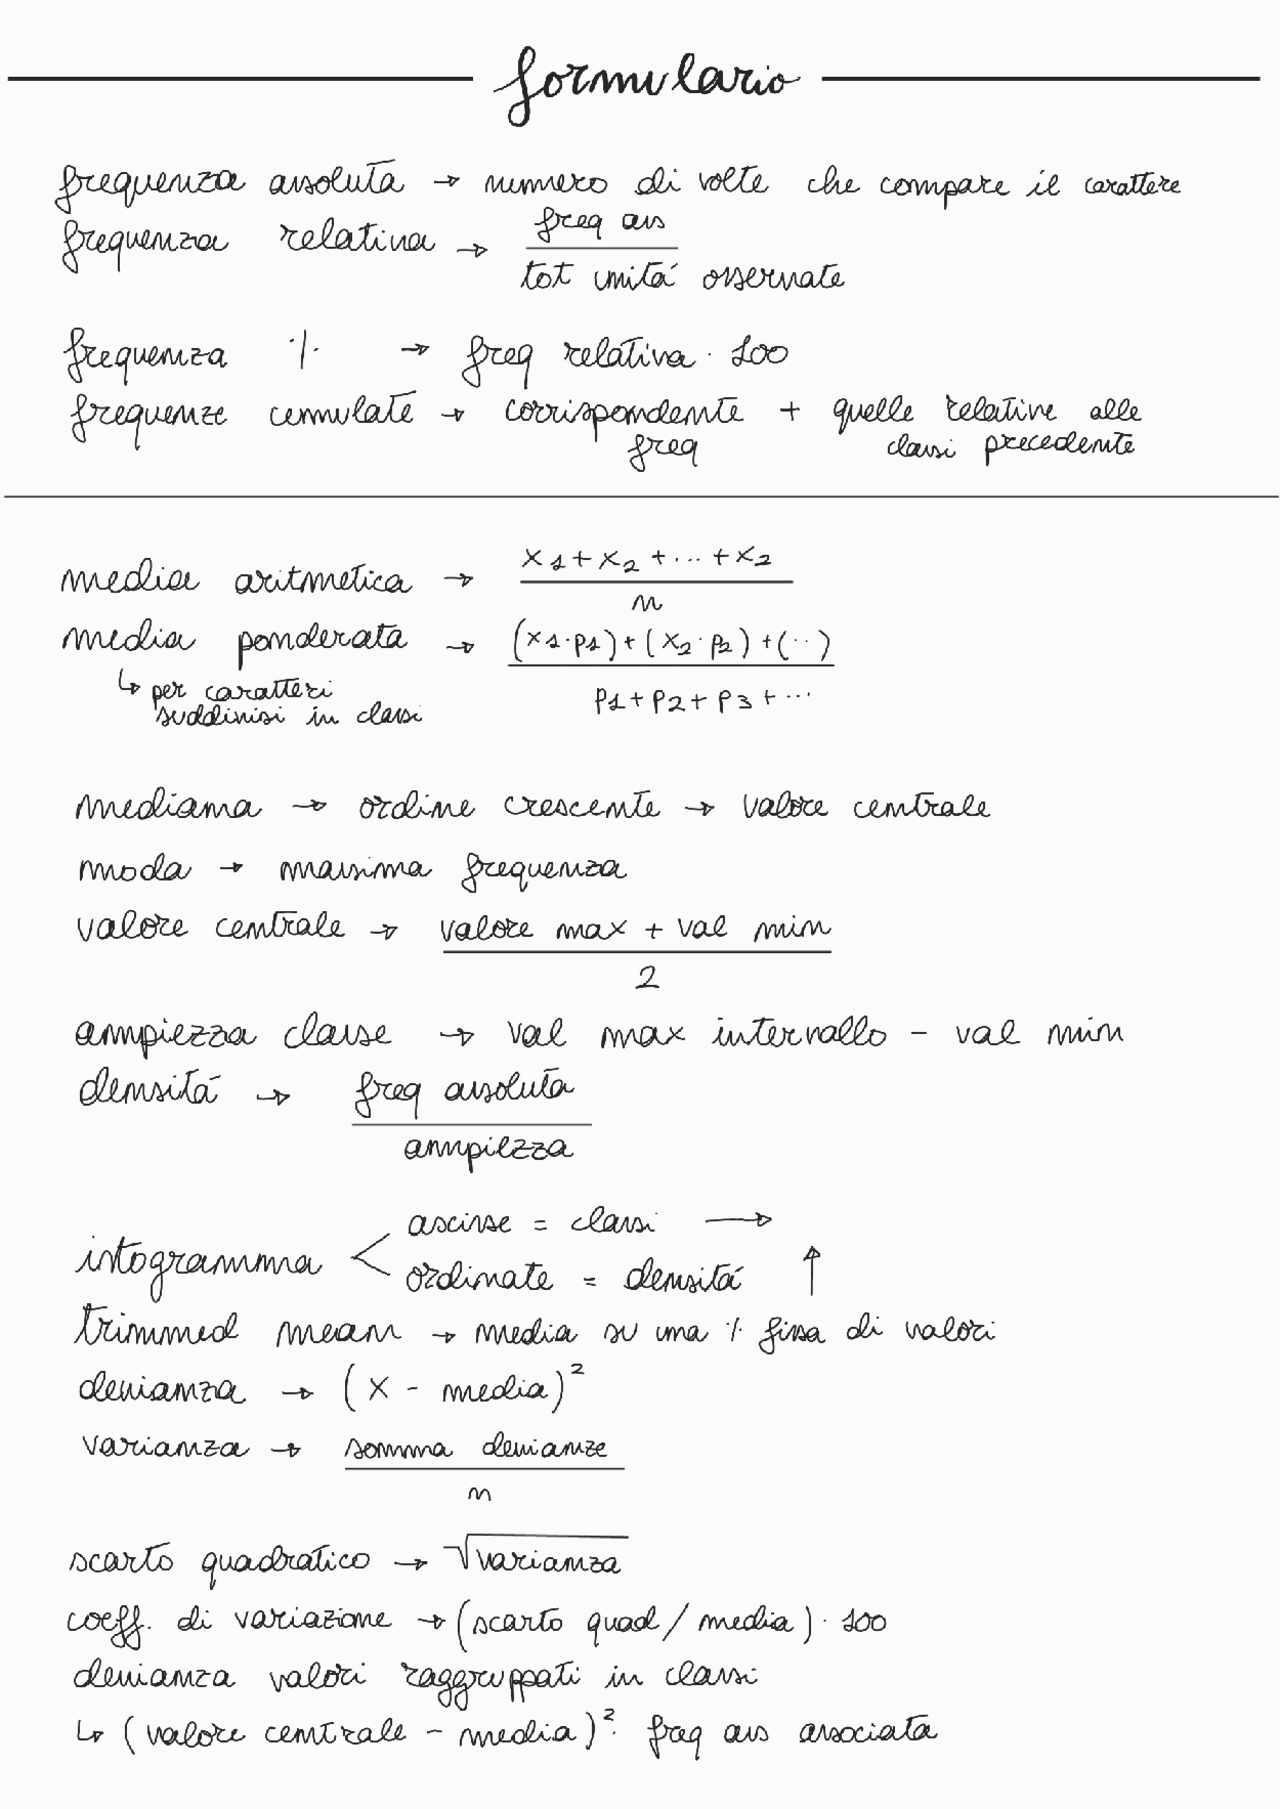 formulario
frequenza assoluta → numero di volte che compare il carattere
frequenza relativa → freq ass
tot unitá osservate
frequenza % → freq relativa · 100
frequenze cumulate → corrispondente + quelle relative alle
freq classi precedente
media aritmetica → x1 + x2 + ... + x2
n
media ponderata → (x1·p1) + (x2·p2) + (··)
↳ per caratteri p1 + p2 + p3 + ...
suddivisi in classi
mediana → ordine crescente → valore centrale
moda → massima frequenza
valore centrale → valore max + val min
2
ampiezza classe → val max intervallo - val min
densitá → freq assoluta
ampiezza
istogramma < ascisse = classi →
ordinate = densitá ↑
trimmed mean → media su una % fissa di valori
devianza → (x - media)²
varianza → somma devianze
n
scarto quadratico → √varianza
coeff. di variazione → (scarto quad / media) · 100
devianza valori raggruppati in classi
↳ (valore centrale - media)² · freq ass associata